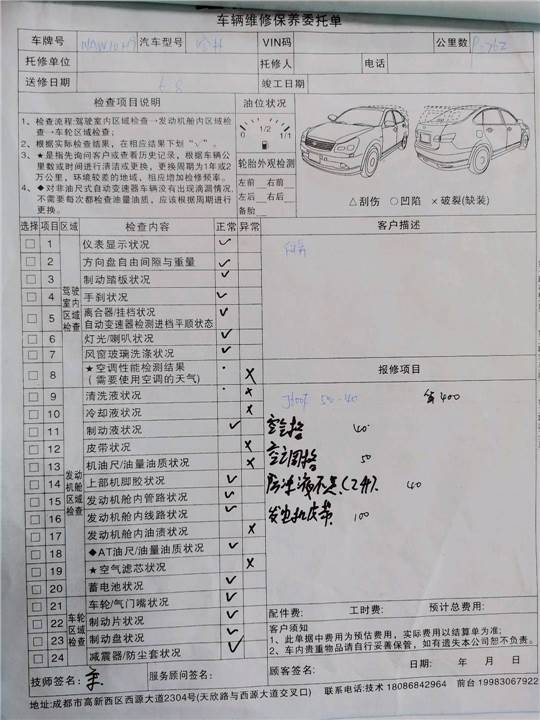 车辆维修保养委托单
车牌号 汽车型号 VIN码 公里数
托修单位 托修人 电话
送修日期 竣工日期
检查项目说明 油位状况
1、检查流程:驾驶室内区域检查→发动机舱内区域检
查→车轮区域检查;
2、根据实际检查结果，在相应结果下划“√”。
3、★是指先询问客户或查看历史记录，根据车辆公
里数或时间进行清洁或更换，更换周期为1年或2
万公里，环境较差的地域，相应增加修频率。
4、◆对非油尺式自动变速器车辆没有出现滴漏情况，
不需要每次都检查油量油质，应该根据周期进行
更换。
0 1/2 1/1
轮胎外观检测
左前 右前
左后 右后
备胎
△刮伤 ○凹陷 ×破裂(缺装)
选择 项目 区域 检查内容 正常 异常 客户描述
驾驶室内区域检查
1 仪表显示状况 ✓
2 方向盘自由间隙与重量 ✓
3 制动踏板状况 ✓
4 手刹状况 ✓
5 离合器/挂档状况
自动变速器检测进档平顺状态 ✓
6 灯光/喇叭状况 ✓
7 风窗玻璃洗涤状况 ✓
8 ★空调性能检测结果
(需要使用空调的天气) x
报修项目
发动机舱区域检查
9 清洗液状况 x
10 冷却液状况 x
11 制动液状况 ✓
12 皮带状况 x
13 机油尺/油量油质状况 x
14 上部机脚胶状况 ✓
15 发动机舱内管路状况 ✓
16 发动机舱内线路状况 ✓
17 发动机舱内油渍状况 x
18 ◆AT油尺/油量油质状况 ✓
19 ★空气滤芯状况 x
20 蓄电池状况 ✓
车轮区域检查
21 车轮/气门嘴状况 ✓
22 制动片状况 ✓
23 制动盘状况 ✓
24 减震器/防尘套状况 ✓
50-40 400
空气格 40
空调格 50
防冻液不足(2升) 40
发电机皮带 100
配件费: 工时费: 预计总费用:
客户须知
1、此单据中费用为预估费用，实际费用以结算单为准;
2、车内贵重物品请自行妥善保管，如有遗失本公司恕不负责。
日期: 年 月 日
技师签名: 服务顾问签名: 顾客签名:
地址:成都市高新西区西源大道2304号(天欣路与西源大道交叉口) 联系电话:技术 18086842964 前台 19983067922